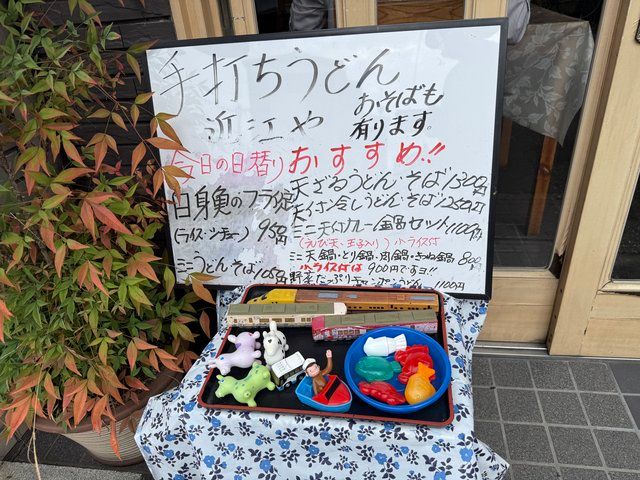 手打ちうどん
近江や
おそばも
有ります。
今日の日替り
おすすめ!!
白身魚のフライ定
(ライス・ツナー) 950円
ミニうどんそば 1050円
天ざるうどん・そば 1300円
冷しうどん・そば 1250円
ミニ天カレー鍋セット 1100円
(えび天・玉子入り) 小ライス付
ミニ天鍋・とり鍋・肉鍋・きつね鍋 800円
小ライス付は900円ですヨ!!
野菜たっぷりチャンプンうどん 1100円